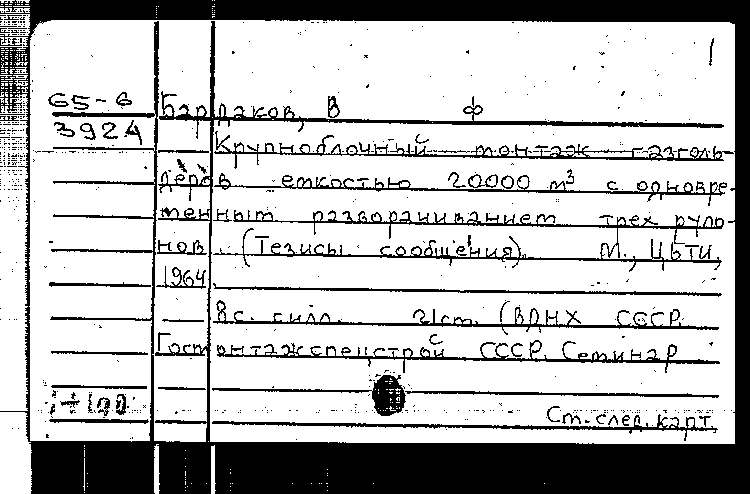 1
65-6
Бардаков, В Ф
3924
Крупноблочный монтаж газголь-
деров емкостью 20000 м³ с одновре-
менным разворачиванием трех руло-
нов. (Тезисы сообщения). М., ЦБТИ,
1964.
8 с. с илл. 21 см. (ВДНХ СССР.
Госмонтажспецстрой СССР. Семинар
См. след. карт.